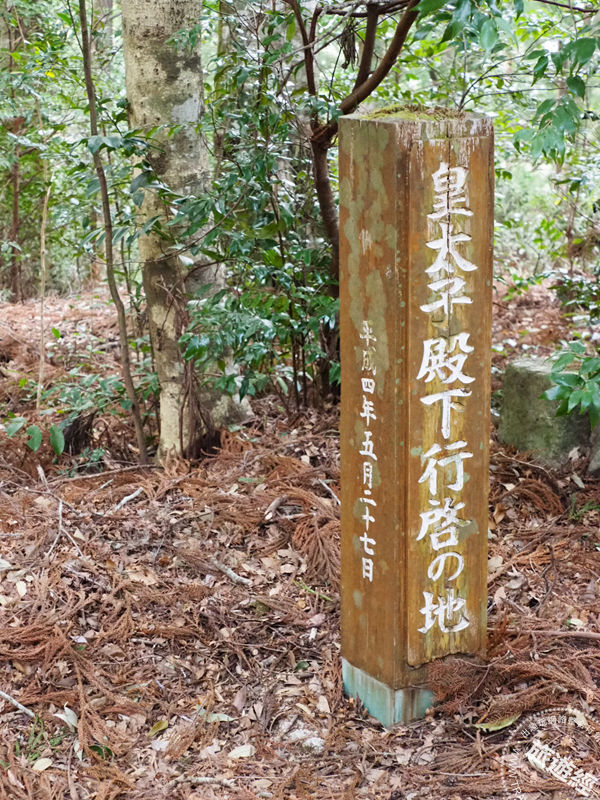 皇太子殿下行啓の地
平成四年五月二十七日
旅遊經